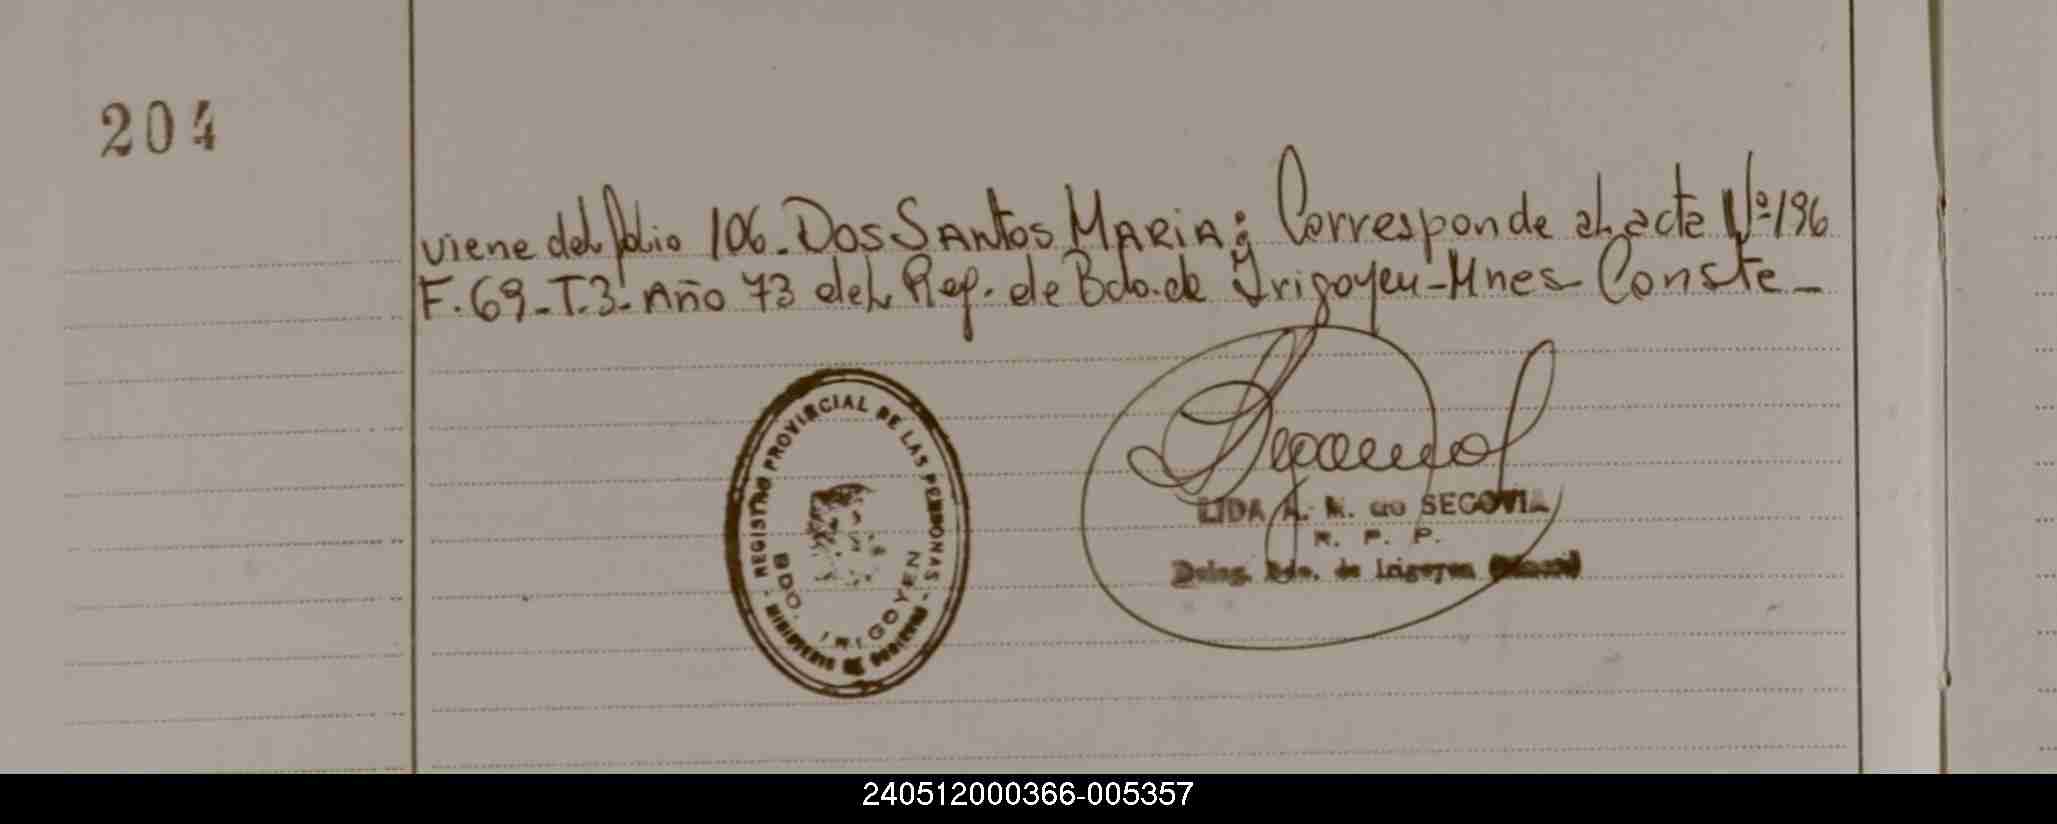 204
viene del folio 106. DOS SANTOS MARIA: Corresponde al acta Nº 196
F. 69 - T. 3 - Año 73 del Reg. de Bdo. de Irigoyen - Mnes - Conste -
REGISTRO PROVINCIAL DE LAS PERSONAS
BDO. IRIGOYEN
MINISTERIO DE GOBIERNO
LIDA A. M. de SEGOVIA
R. P. P.
Deleg. Bdo. de Irigoyen
240512000366-005357